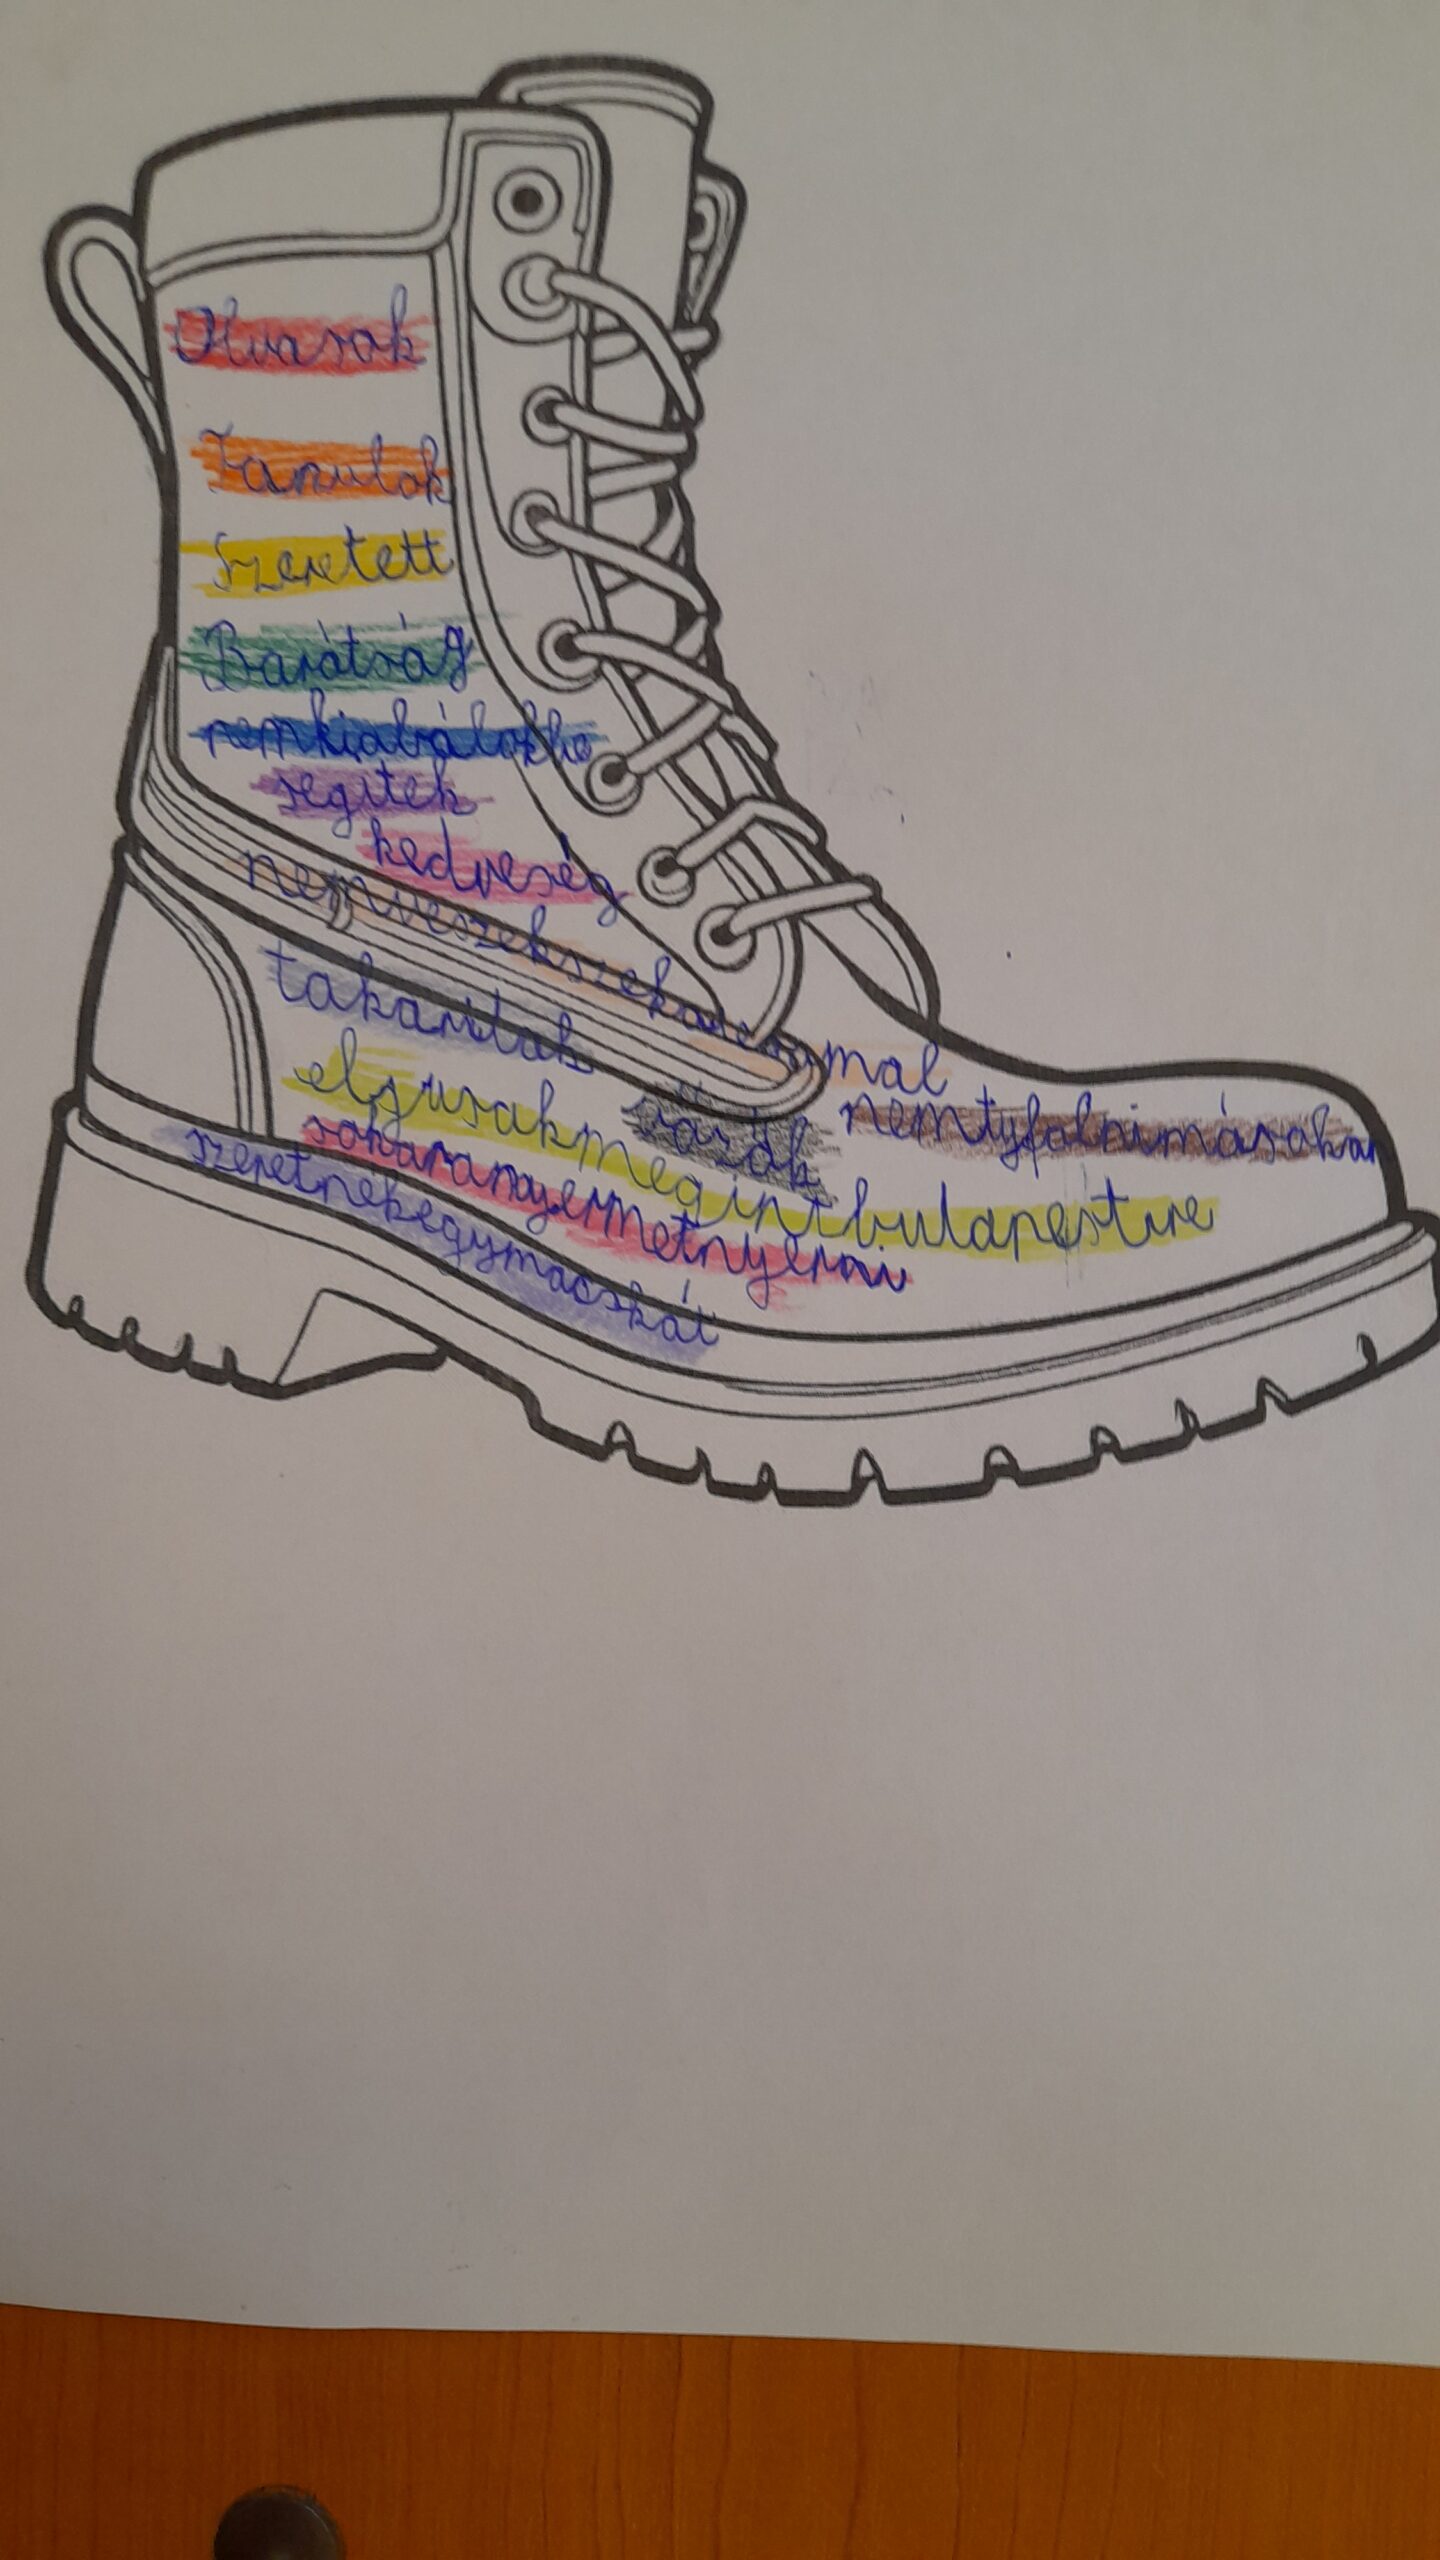 Olvasok
Tanulok
Szeretett
Barátság
nemkiabálok
segitek
kedveség
nemveszek
mal
takaritok
nemtyfolnimásokan
eljusakmegintbudapestre
sokaranyermetnyerni
szeretnékegymacskát